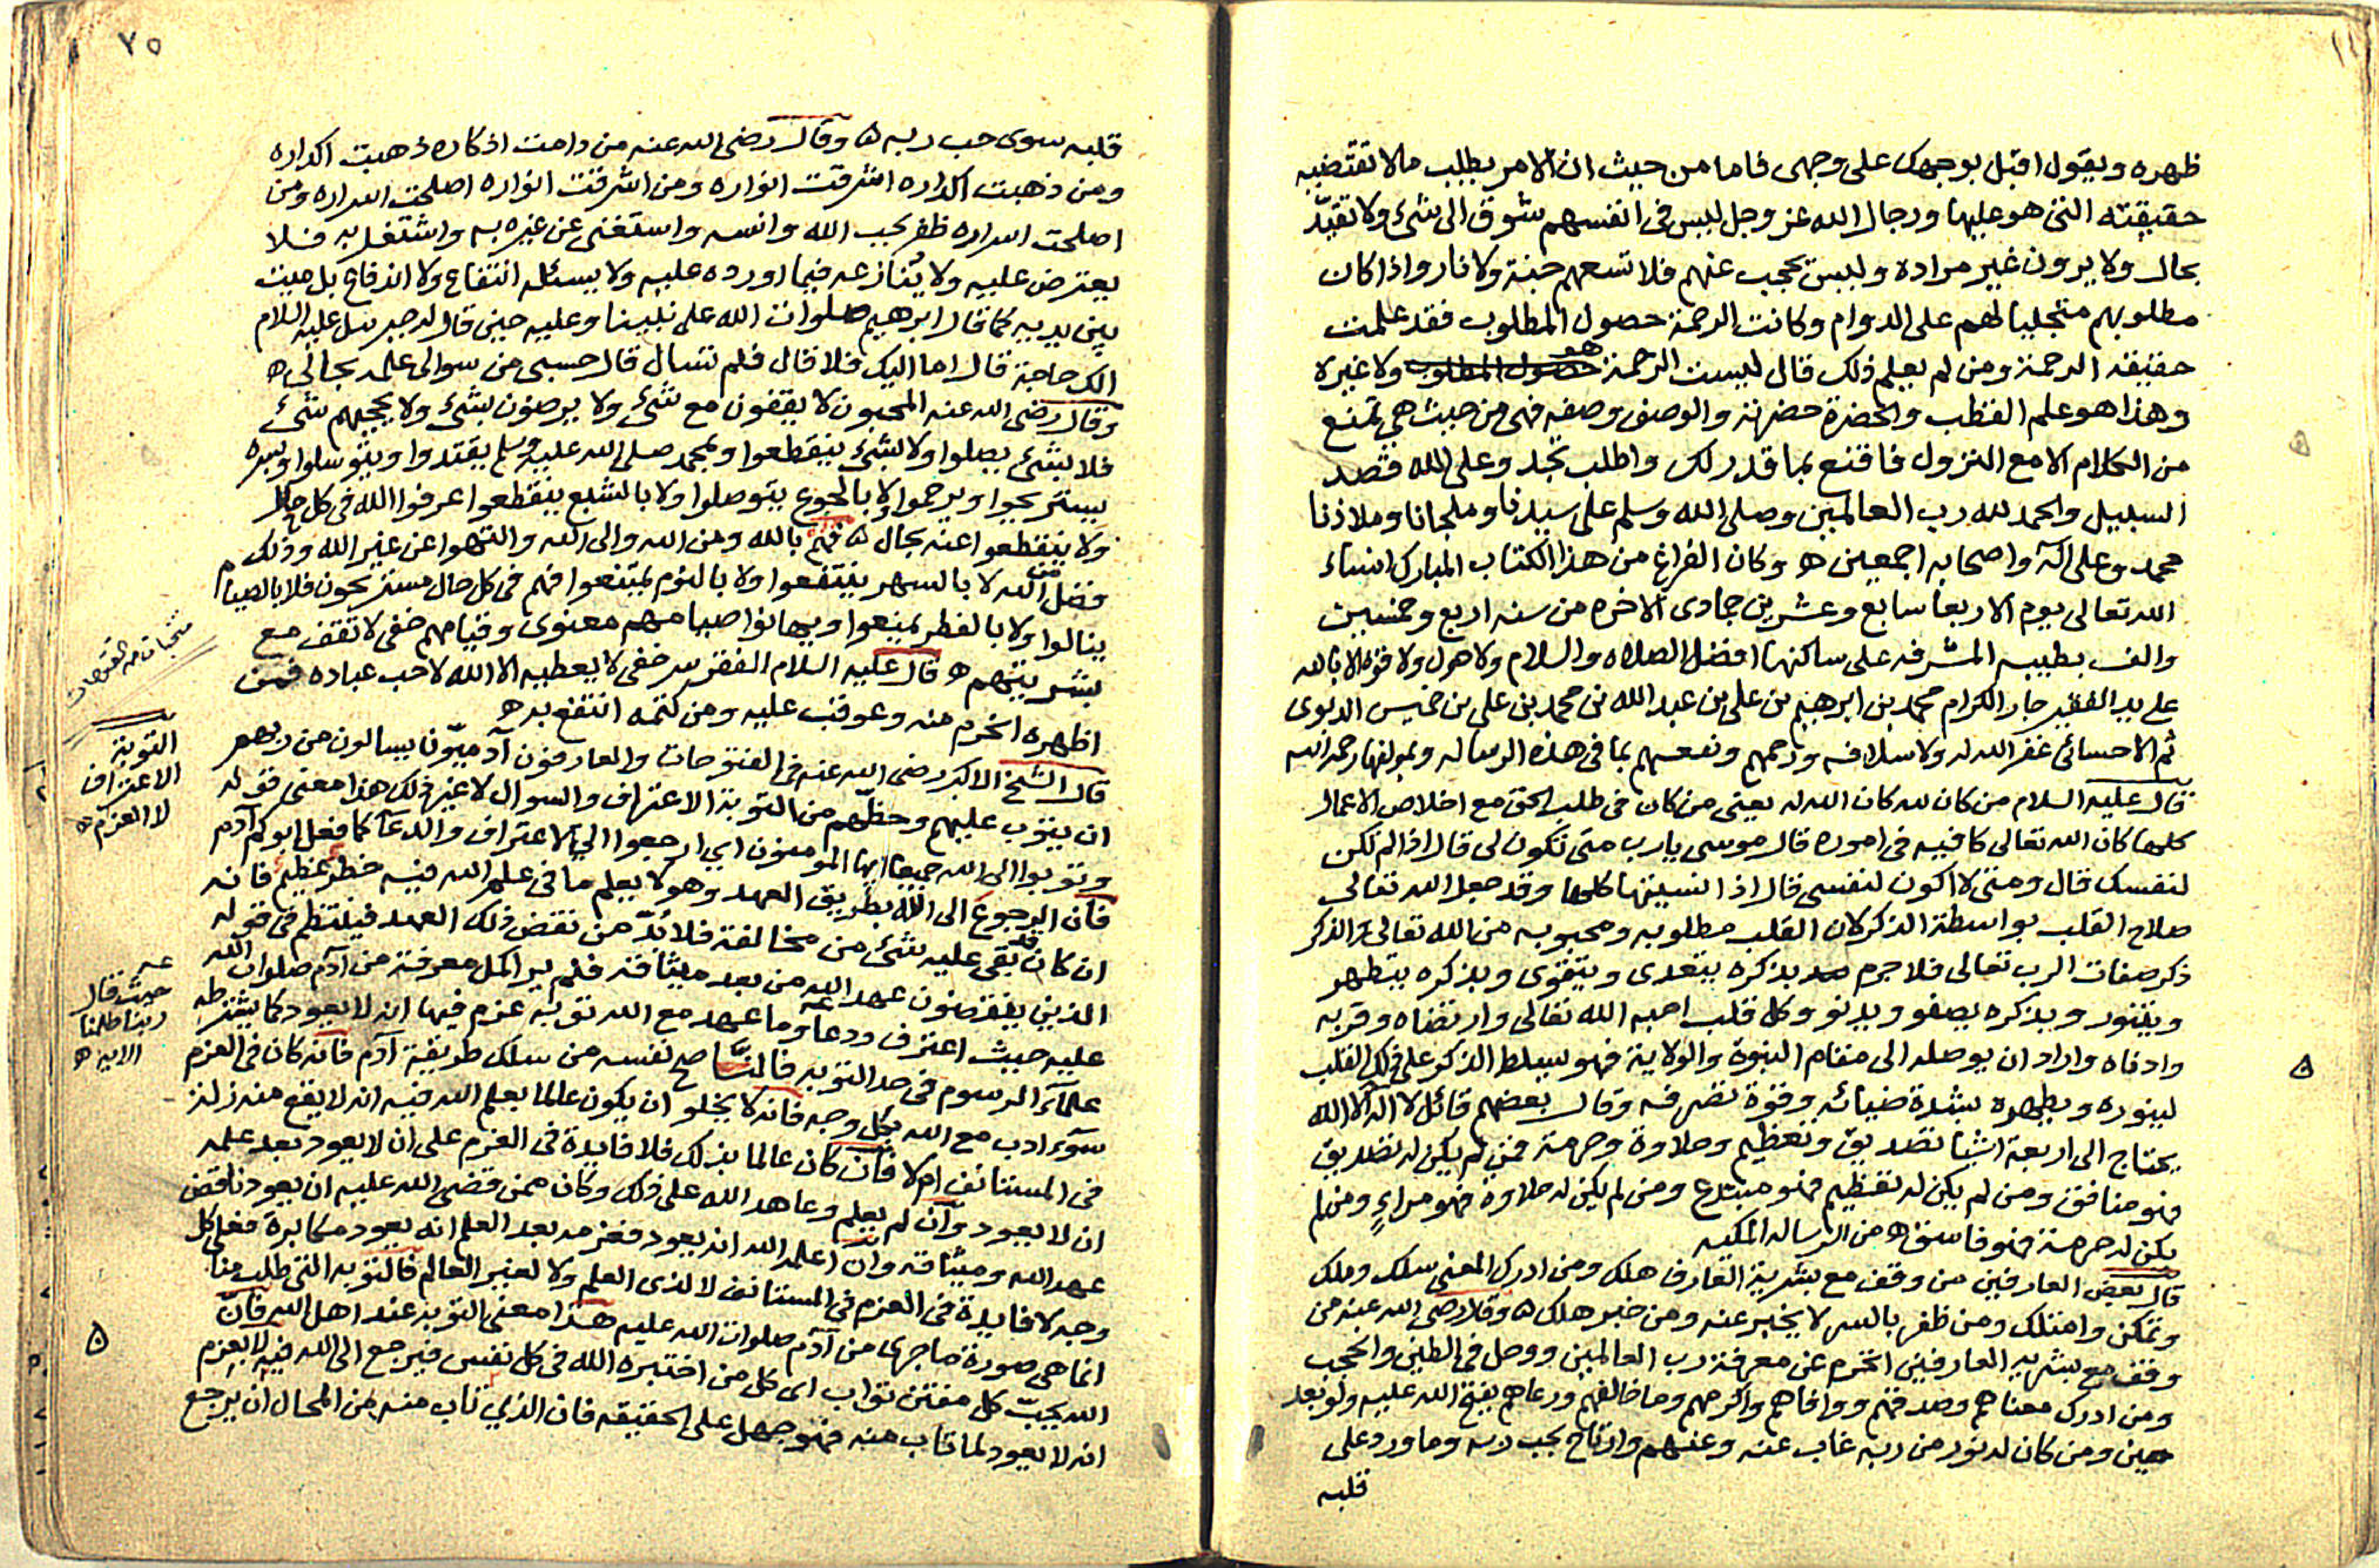 ظهره ويقول اقبل بوجهك على وجهى فاما من حيث ان الامر يطلب مالا تقتضيه
حقيقته التى هو عليها ورجال الله عز وجل ليس فى انفسهم شوق الى شئ ولا تقيّد
بحال ولا يرون غير مراده وليس يحجب عنهم فلا تسعهم جنة ولا نار واذا كان
مطلوبهم متجليا لهم على الدوام وكانت الرحمة حصول المطلوب فقد علمت
حقيقة الرحمة ومن لم يعلم ذلك قال ليست الرحمة هو حصول المطلوب ولا غيره
وهذا هو علم القطب والحضرة حضرته والوصف وصفه فهى من حيث هى تمنع
من الكلام الا مع النزول فاقنع بما قدر لك واطلب تجد وعلى الله قصد
السبيل والحمد لله رب العالمين وصلى الله وسلم على سيدنا وملجانا وملاذنا
محمد وعلى اله واصحابه اجمعين ه وكان الفراغ من هذا الكتاب المبارك انشاء
الله تعالى يوم الاربعا سابع وعشرين جمادى الاخره من سنه اربع وخمسين
والف بطيبه المشرفه على ساكنها افضل الصلاه والسلام ولا حول ولا قوة الا بالله
على يد الفقير جار الكرام محمد بن ابرهيم بن على بن عبد الله بن محمد بن على بن خميس
ثم الاحسائى غفر الله له ولاسلافه ورحمهم ونفعهم بما فى هذه الرساله وبمولفها رحمه الله
قال عليه السلام من كان لله كان الله له يعنى من كان فى طلب الحق مع اخلاص الاعمال
كلها كان الله تعالى كافيه فى اموره قال موسى يارب متى تكون لى قال اذا لم تكن
لنفسك قال ومتى لا اكون لنفسى قال اذا نسيتها كلها وقد جعل الله تعالى
صلاح القلب بواسطة الذكر لان القلب مطلوبه ومحبوبه من الله تعالى والذكر
ذكر صفات الرب تعالى فلا جرم بذكره يتغدى ويتقوى وبذكره يتطهر
ويتنور وبذكره يصفو ويدنو وكل قلب احبه الله تعالى وارتضاه وقربه
وادناه واراد ان يوصله الى مقام النبوة والولاية فهو يسلط الذكر على ذلك القلب
لينوره ويطهره بشدة ضيائه وقوة تصرفه وقال بعضهم قائل لا اله الا الله
يحتاج الى اربعة اشيا تصديق وتعظيم وحلاوة وحرمة فمن لم يكن له تصديق
فهو منافق ومن لم يكن له تعظيم فهو مبتدع ومن لم يكن له حلاوة فهو مراءٍ ومن لم
يكن له حرمة فهو فاسق ه من الرساله المكيه
قال بعض العارفين من وقف مع بشرية العارف هلك ومن ادرك المعنى سلك وملك
وتمكن وامتلك ومن ظفر بالسر لا يخبر عنه ومن خبر هلك ه وقال رضى الله عنه من
وقف مع بشريه العارفين انحرم عن معرفة رب العالمين ووحل فى الطين والحجب
ومن ادرك معناهم وصدقهم ووافاهم واكرمهم وما خالفهم ورعاهم يفتح الله عليه ولو بعد
حين ومن كان له نور من ربه غاب عنه وعنهم وارتاح بحب ربه وما ورد على
قلبه
٧٥
قلبه سوى حب ربه ه وقال رضى الله عنه من دامت اذكاره ذهبت اكداره
ومن ذهبت اكداره اشرقت انواره ومن اشرقت انواره اصلحت اسراره ومن
اصلحت اسراره ظفر بحب الله وانسه واستغنى عن غيره به واشتغل به فلا
يعترض عليه ولا يُنازعه فيما اورده عليه ولا يسئله انتفاع ولا اندفاع بل ميت
بين يديه كما قال ابرهيم صلوات الله على نبينا وعليه حين قال له جبرئيل عليه السلام
الك حاجة قال اما اليك فلا قال فلم تسال قال حسبى من سوالى علمه بحالى ه
وقال رضى الله عنه المحبون لا يقفون مع شئ ولا يرضون بشئ ولا يحجبهم شئ
فلا بشئ يصلوا ولا بشئ ينقطعوا وبمحمد صلى الله عليه وسلم يقتدوا ويتوسلوا وبسره
يستريحوا ويرحموا لا بالجوع يتوصلوا ولا بالشبع ينقطعوا عرفوا الله فى كل حال
ولا ينقطعوا عنه بحال ه فهم بالله ومن الله والى الله والتهوا عن غير الله وذلك من
فضل الله لا بالسهر ينتفعوا ولا بالنوم يمتنعوا فهم فى كل حال مستريحون فلا بالصيام
ينالوا ولا بالفطر يمنعوا ويهانوا صيامهم معنوى وقيامهم خفى لا تقف مع
بشريتهم ه قال عليه السلام الفقر سر خفى لا يعطيه الا الله لاحب عباده فمن
اظهره انحرم منه وعوقب عليه ومن كتمه انتفع به ه
قال الشيخ الاكبر رضى الله عنه فى الفتوحات والعارفون آدميّون يسالون من ربهم
ان يتوب عليهم وحظّهم من التوبة الاعتراف والسوال لا غير ذلك هذا معنى قوله
وتوبوا الى الله جميعا ايها المومنون اى ارجعوا الى الاعتراف والدعآ كما فعل ابوكم آدم
فان الرجوع الى الله بطريق العهد وهو لا يعلم ما فى علم الله فيه خطر عظيم فانه
ان كان قد بقى عليه شئ من مخالفة فلا بُدّ من نقض ذلك العهد فينتظم فى قوله
الذين ينقضون عهد الله من بعد ميثاقه فلم ير اكمل معرفة من آدم صلوات الله
عليه حيث اعترف ودعا وما عهد مع الله توبه عزم فيها انه لا يعود كما يشترطه
علمآء الرسوم فى حد التوبه فالنّاصح نفسه من سلك طريقة آدم فانه كان فى العزم
سوء ادب مع الله بكل وجه فانه لا يخلو ان يكون عالما بعلم الله فيه انه لا يقع منه زلة
فى المستانف ام لا فان كان عالما بذلك فلا فايدة فى العزم على ان لا يعود بعد علمه
ان لا يعود وان لم يعلم وعاهد الله على ذلك وكان ممن قضى الله عليه ان يعود ناقض
عهد الله وميثاقه وان اعلمه الله انه يعود فعزمه بعد العلم انه يعود مكابرة فعلى كل
وجه لا فايدة فى العزم فى المستانف لا لذى العلم ولا لغير العالم فالتوبه التى طلب منا
انما هى صورة ما جرى من آدم صلوات الله عليه هذا معنى التوبه عند اهل الله فانّ
الله يحبّ كل مفتن تواب اى كل من اختبره الله فى كل نفس فيرجع الى الله فيه لا بعزم
انه لا يعود لما تاب منه فهو جهل على الحقيقه فان الذي تاب منه من المحال ان يرجع
التوبة
الاعتراف
لا العزم ه
حيث قال
ربنا ظلمنا
الايه ه